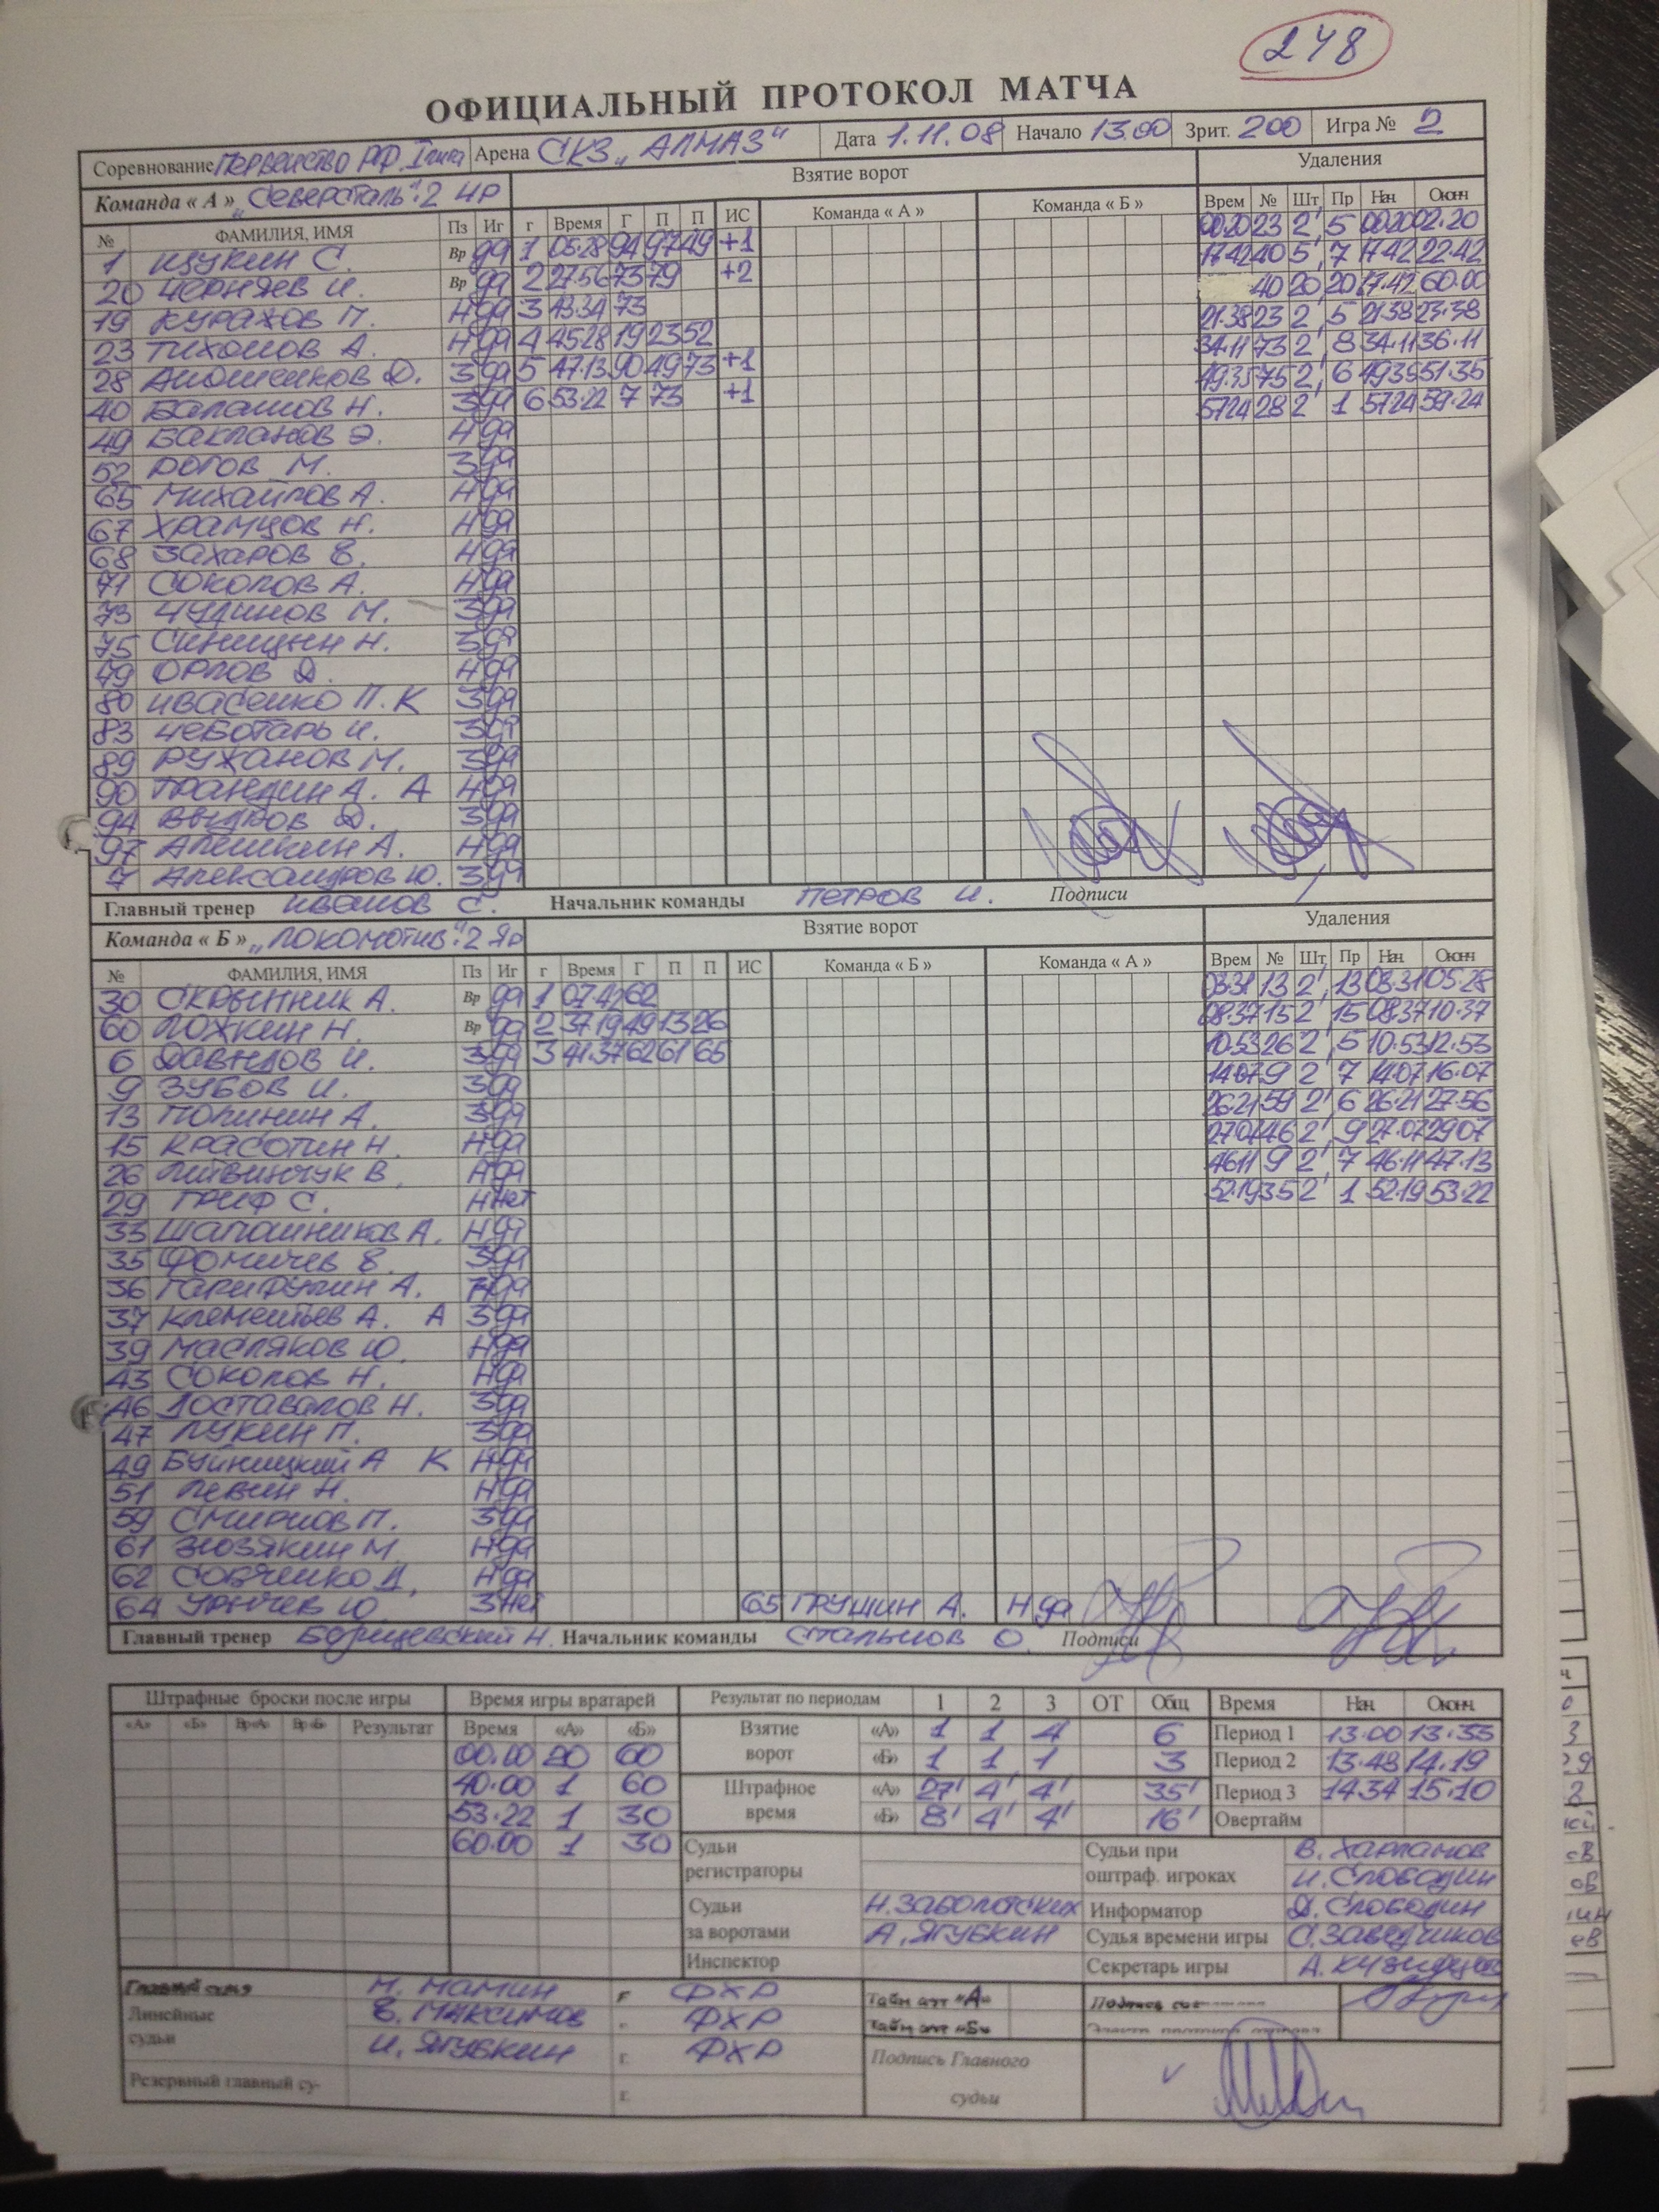 248
ОФИЦИАЛЬНЫЙ ПРОТОКОЛ МАТЧА
Соревнование Первенство РФ. I лига Арена СКЗ „АЛМАЗ" Дата 1.11.08 Начало 13.00 Зрит. 200 Игра № 2
Команда « А » „Северсталь"-2 ЧР Взятие ворот Удаления
№ ФАМИЛИЯ, ИМЯ Пз Иг г Время Г П П ИС Команда « А » Команда « Б » Врем № Шт Пр Нач Оконч
1 Щукин С. Вр да 1 05.28 94 97 49 +1 00.20 23 2' 5 00.20 02.20
20 Черняев И. Вр да 2 27.56 73 79 +2 17.42 40 5' 7 17.42 22.42
19 Курахов П. Н да 3 43.34 73 40 20 20 17.42 60.00
23 Тихонов А. Н да 4 45.28 19 23 52 21.38 23 2' 5 21.38 23.38
28 Аношенков Д. З да 5 47.13 90 49 73 +1 34.11 73 2' 8 34.11 36.11
40 Балашов Н. З да 6 53.22 7 73 +1 49.35 75 2' 6 49.35 51.35
49 Бакланов Э. Н да 57.24 28 2' 1 57.24 59.24
52 Рогов М. З да
65 Михайлов А. Н да
67 Храмцов Н. Н да
68 Захаров В. Н да
71 Соколов А. Н да
73 Чудинов М. З да
75 Синицын Н. З да
79 Орлов Д. Н да
80 Ивасенко П. К З да
83 Чеботарь И. З да
89 Руханов М. З да
90 Грандин А. А Н да
94 Выдров Д. З да
97 Алешкин А. Н да
7 Александров Ю. З да
Главный тренер Иванов С. Начальник команды Петров И. Подписи
Команда « Б » „Локомотив"-2 Яр Взятие ворот Удаления
№ ФАМИЛИЯ, ИМЯ Пз Иг г Время Г П П ИС Команда « Б » Команда « А » Врем № Шт Пр Нач Оконч
30 Скрынник А. Вр да 1 07.42 62 03.31 13 2' 13 03.31 05.28
60 Ложкин Н. Вр да 2 37.19 49 13 26 08.37 15 2' 15 08.37 10.37
6 Давыдов И. З да 3 41.37 62 61 65 10.53 26 2' 5 10.53 12.53
9 Зубов И. З да 14.07 9 2' 7 14.07 16.07
13 Полинин А. З да 26.21 59 2' 6 26.21 27.56
15 Красоткин Н. Н да 27.07 46 2' 9 27.07 29.07
26 Литвинчук В. Н да 46.11 9 2' 7 46.11 47.13
29 Гриф С. Н нет 52.19 35 2' 1 52.19 53.22
33 Шапошников А. Н да
35 Фомичев В. З да
36 Гарифулин А. Н да
37 Клементьев А. А З да
39 Масляков Ю. Н да
43 Соколов Н. Н да
46 Доставалов Н. З да
47 Лукин П. З да
49 Буйницкий А К Н да
51 Левин Н. Н да
59 Смирнов П. З да
61 Зюзякин М Н да
62 Собченко Д. Н да
64 Урычев Ю. З нет 65 Грушин А. Н да
Главный тренер Борщевский Н. Начальник команды Стальнов О. Подписи
Штрафные броски после игры Время игры вратарей Результат по периодам 1 2 3 ОТ Общ Время Нач. Оконч.
«А» «Б» Вр«А» Вр«Б» Результат Время «А» «Б» Взятие ворот «А» 1 1 4 6 Период 1 13.00 13.33
00.00 20 60 «Б» 1 1 1 3 Период 2 13.48 14.19
40.00 1 60 Штрафное время «А» 27' 4' 4' 35' Период 3 14.34 15.10
53.22 1 30 «Б» 8' 4' 4' 16' Овертайм
60.00 1 30 Судьи регистраторы Судьи при оштраф. игроках В. Харламов
И. Слободин
Судьи за воротами Н. Заболотских Информатор Д. Слободин
А. Ягубкин Судья времени игры С. Заведчиков
Инспектор Секретарь игры А. Кузнецов
Главный судья М. Мамин г. ФХР Тайм аут «А»
Линейные судьи В. Максимов г. ФХР Тайм аут «Б»
И. Ягубкин г. ФХР Подпись Главного судьи
Резервный главный су- г.